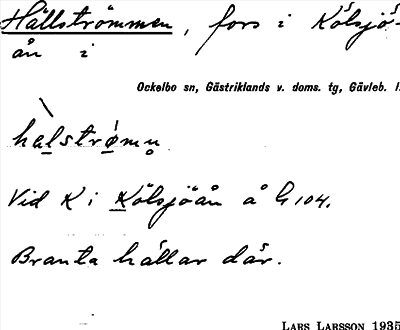 Hällströmmen, fors i Kölsjö-
ån i
Ockelbo sn, Gästriklands v. doms. tg, Gävleb. l.
hàlstrǿmn̥
Vid K i Kölsjöån å G 104.
Branta hällar där.
LARS LARSSON 1935